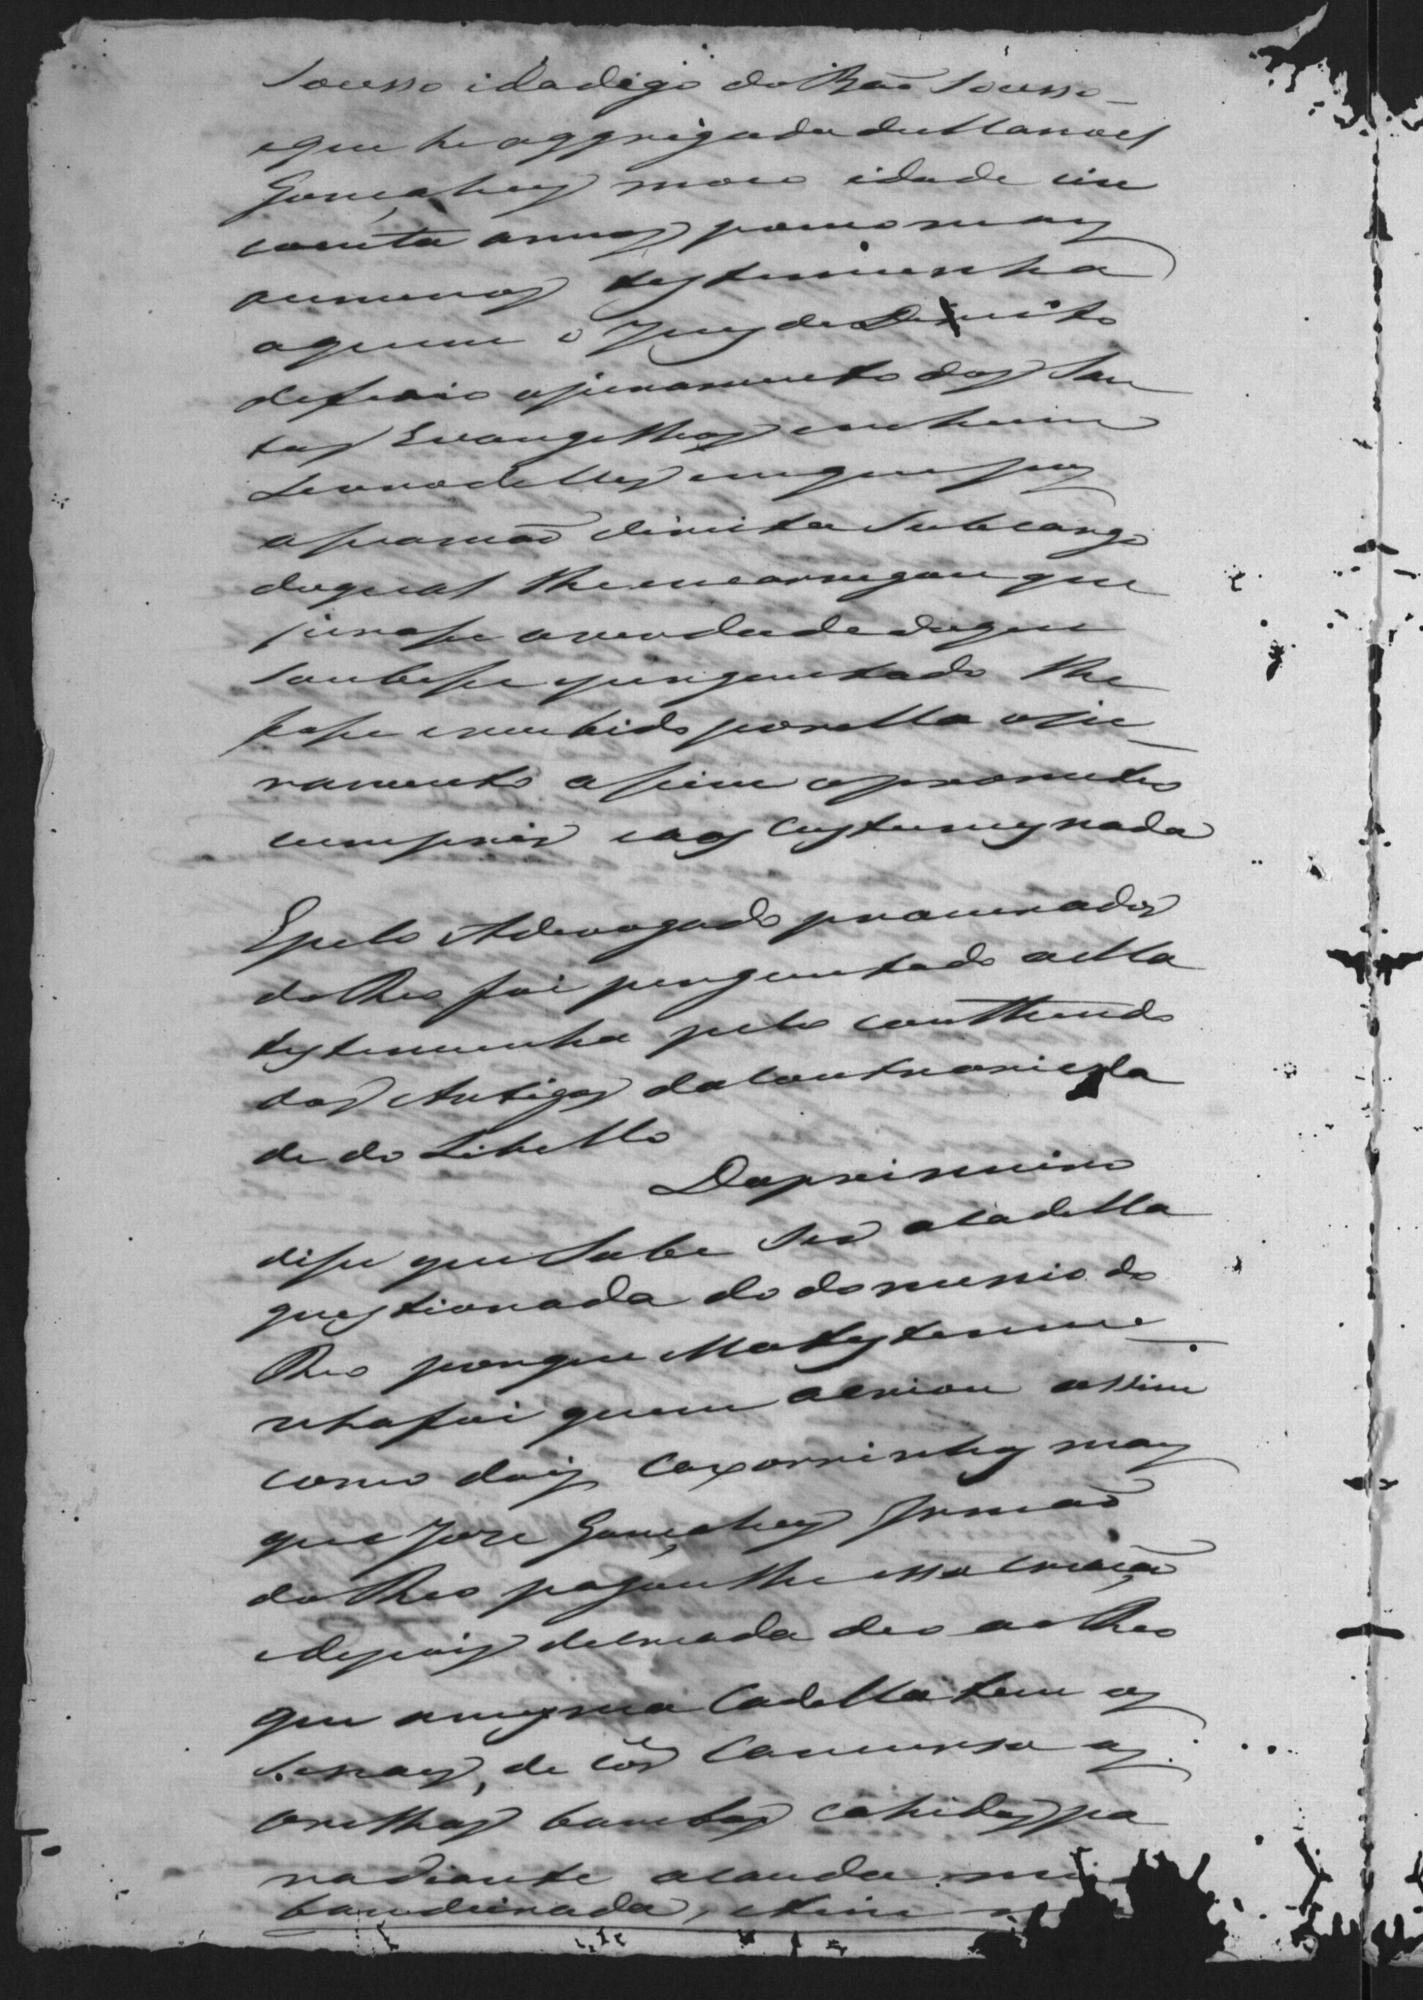 Socusso idadigo do Rão Socusso
e que he aggrigada de Manoel
Gonçalves mora idade cin
coenta annos pouco mais
oumenos testemunha
aquem o Juiz de Direito
deferio ojuramento dos San
tos Evangelhos em hum
Livro delles em que pos
a sua mão direita Subcargo
do qual lhe encarregou que
jurasse a verdade do que
soubesse e perguntado lhe
fosse recebido por ella oju
ramento assim o prometeo
cumprir e aos Custumes nada
E pelo Advogado procurador
do Reo foi perguntado a ella
testemunha pelo conthiudo
dos Artigos da Contrarieda
de do Libello
Do primeiro
disse que Sabe Ser a Cadella
questionada do dominio do
Reo porque Ella testemu
nha foi quem a criou assim
como dois Caxorrinhos mas
que Joze Gonçalves Irmão
do Reo pagou lhe essa criação
e depois de criada deo ao Reo
que a mesma Cadella tem os
Sinaes, de Côr Camurça as
orelhas bambas cahidas pa
radiante a cauda
bandeirada, e tem